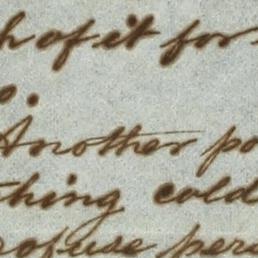 h of it for
o.
Another po
thing cold
rofuse pers